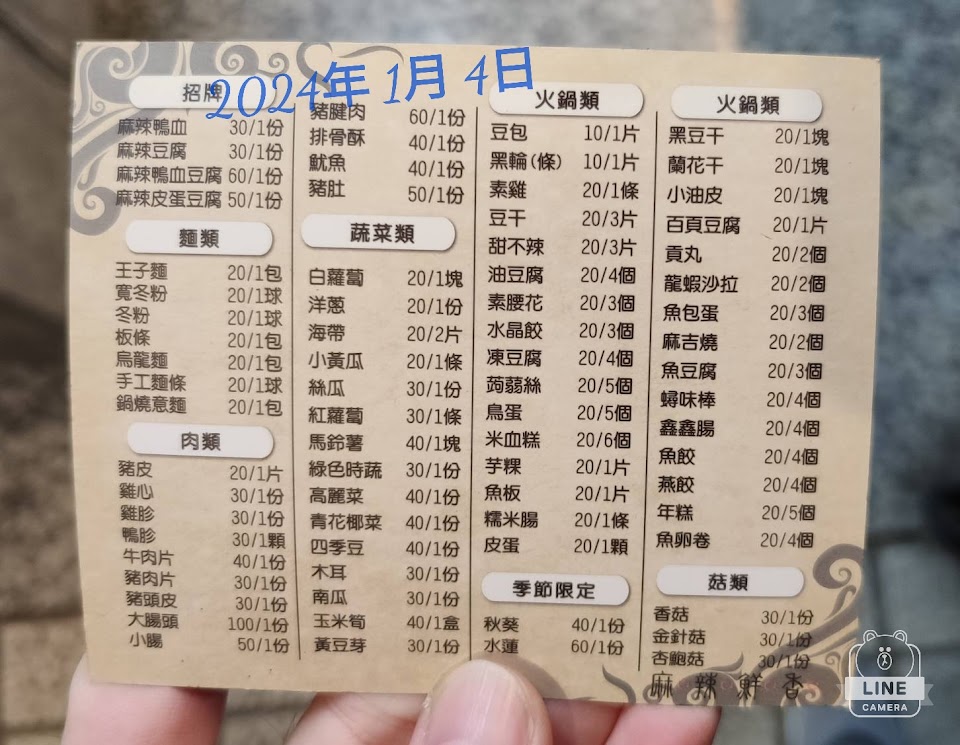 2024年 1月 4日
招牌
麻辣鴨血 30/1份
麻辣豆腐 30/1份
麻辣鴨血豆腐 60/1份
麻辣皮蛋豆腐 50/1份
麵類
王子麵 20/1包
寬冬粉 20/1球
冬粉 20/1球
板條 20/1包
烏龍麵 20/1包
手工麵條 20/1球
鍋燒意麵 20/1包
肉類
豬皮 20/1片
雞心 30/1份
雞胗 30/1份
鴨胗 30/1顆
牛肉片 40/1份
豬肉片 30/1份
豬頭皮 30/1份
大腸頭 100/1份
小腸 50/1份
豬腱肉 60/1份
排骨酥 40/1份
魷魚 40/1份
豬肚 50/1份
蔬菜類
白蘿蔔 20/1塊
洋蔥 20/1份
海帶 20/2片
小黃瓜 20/1條
絲瓜 30/1份
紅蘿蔔 30/1條
馬鈴薯 40/1塊
綠色時蔬 30/1份
高麗菜 40/1份
青花椰菜 40/1份
四季豆 40/1份
木耳 30/1份
南瓜 30/1份
玉米筍 40/1盒
黃豆芽 30/1份
火鍋類
豆包 10/1片
黑輪(條) 10/1片
素雞 20/1條
豆干 20/3片
甜不辣 20/3片
油豆腐 20/4個
素腰花 20/3個
水晶餃 20/3個
凍豆腐 20/4個
蒟蒻絲 20/5個
鳥蛋 20/5個
米血糕 20/6個
芋粿 20/1片
魚板 20/1片
糯米腸 20/1條
皮蛋 20/1顆
季節限定
秋葵 40/1份
水蓮 60/1份
火鍋類
黑豆干 20/1塊
蘭花干 20/1塊
小油皮 20/1塊
百頁豆腐 20/1片
貢丸 20/2個
龍蝦沙拉 20/2個
魚包蛋 20/3個
麻吉燒 20/2個
魚豆腐 20/3個
蟳味棒 20/4個
鑫鑫腸 20/4個
魚餃 20/4個
燕餃 20/4個
年糕 20/5個
魚卵卷 20/4個
菇類
香菇 30/1份
金針菇 30/1份
杏鮑菇 30/1份
麻辣鮮香
LINE
CAMERA